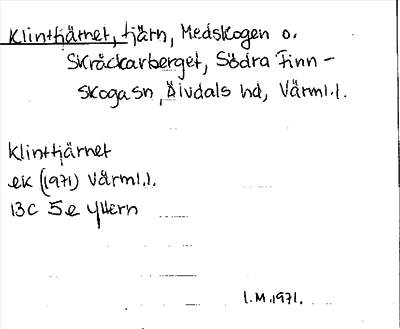 Klinttjärnet, tjärn, Medskogen o.
Skråckarberget, Södra Finn-
skoga sn, Älvdals hd, Värml.l.
Klinttjärnet
ek (1971) Värml.l.
13C 5e Yttern
I.M. 1971.